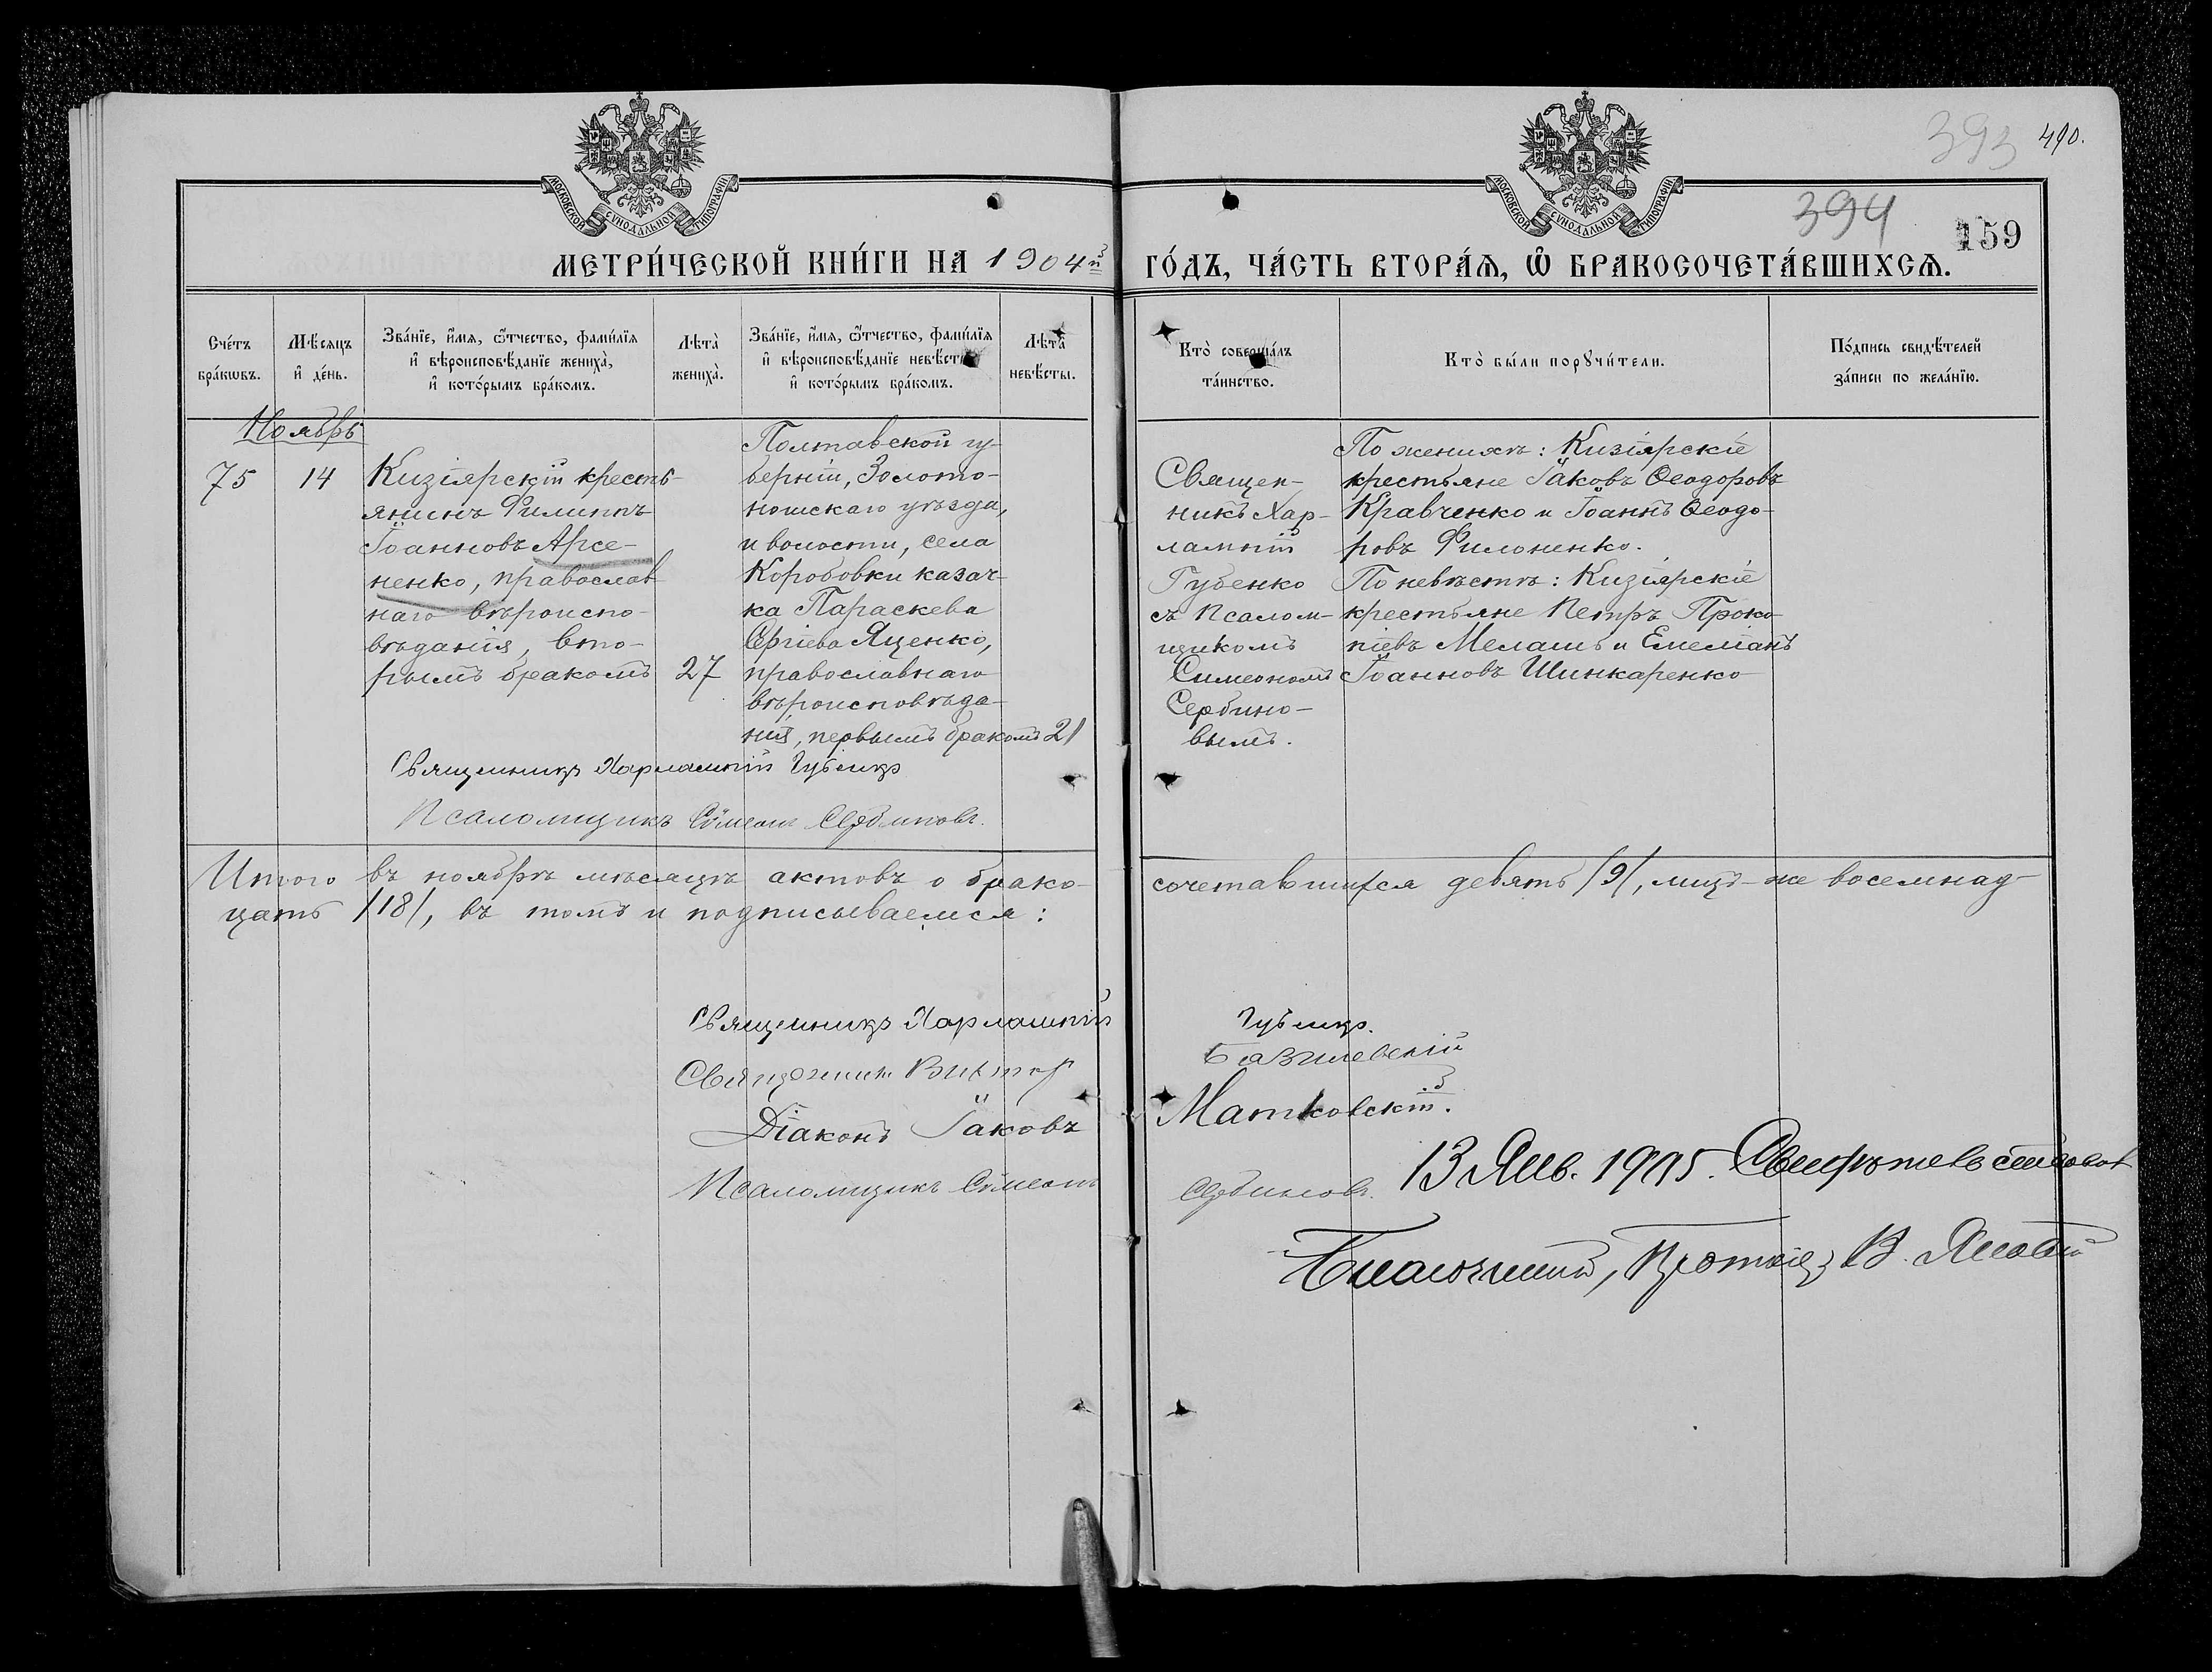 393 490.
394
159
МОСКОВСКОЙ СѴНОДАЛЬНОЙ ТИПОГРАФІИ
МОСКОВСКОЙ СѴНОДАЛЬНОЙ ТИПОГРАФІИ
МЕТРИ́ЧЕСКОЙ КНИ́ГИ НА 1904й ГО́ДЪ, ЧА́СТЬ ВТОРА́Ѧ, Ѽ БРАКОСОЧЕТА́ВШИХСѦ.
Сче́тъ
бра́кѡвъ.
Мѣ́сяцъ
и҆ де́нь.
Зва́нїе, и҆́мѧ, ѻ҆́тчество, фами́лїѧ
и҆ вѣроисповѣ́данїе жениха̀,
и҆ кото́рымъ бра́комъ.
Лѣ́та̀
жениха̀.
Зва́нїе, и҆́мѧ, ѻ҆́тчество, фами́лїѧ
и҆ вѣроисповѣ́данїе невѣ́сты
и҆ кото́рымъ бра́комъ.
Лѣ́та̀
невѣ́сты.
Кто̀ соверша́лъ
та́инство.
Кто̀ бы́ли порꙋчи́тели.
По́дпись свидѣ́телей
за́писи по жела́нїю.
Ноябрь
75
14
Кизіярскій кресть-
янинъ Филиппъ
Іоанновъ Арсе-
ненко, православ
наго вѣроиспо-
вѣданія, вто-
рымъ бракомъ
27
Полтавской гу-
берніи, Золото-
ношскаго уѣзда,
и волости, села
Коробовки казач-
ка Параскева
Сергіева Яценко,
православнаго
вѣроисповѣда-
нія, первымъ бракомъ 21
Священ-
никъ Хар-
лампій
Губенко
съ псалом-
щикомъ
Симеономъ
Сербино-
вымъ.
По женихѣ: Кизіярскіе
крестьяне Іаковъ Ѳеодоровъ
Кравченко и Іоаннъ Ѳеодо-
ровъ Филоненко.
По невѣстѣ: Кизіярскіе
крестьяне Петръ Проко-
піевъ Мелашъ и Емеліанъ
Іоанновъ Шинкаренко
Священникъ Харлампій Губенко
Псаломщикъ Сѵмеонъ Сербиновъ.
Итого въ ноябрѣ мѣсяцѣ актовъ о брако- сочетавшихся девять /9/, лицъ-же восемнад-
цать /18/, въ томъ и подписываемся:
Священникъ Харлампій Губенко.
Священникъ Викторъ Базилевскій
Діаконъ Іаковъ Матковскій.
Псаломщикъ Сѵмеонъ Сербиновъ.
13 Янв. 1905. Свидѣтельствовалъ
Благочинный, Протоіер. В.